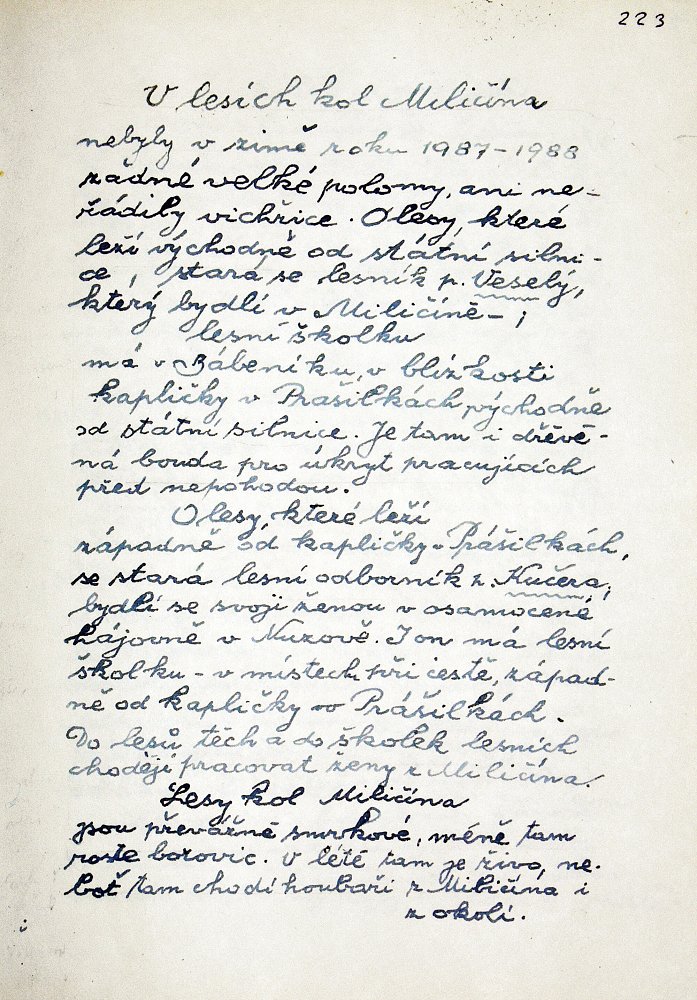 223
V lesích kol Miličína
nebyly v zimě roku 1987-1988
žádné velké polomy, ani ne-
řádily vichřice. O lesy, které
leží východně od státní silni-
ce, stará se lesník p. Veselý,
který bydlí v Miličíně-;
lesní školku
má v Bábeníku, v blízkosti
kapličky v Prašilkách východně
od státní silnice. Je tam i dřevě-
ná bouda pro úkryt pracujících
před nepohodou.
O lesy, které leží
západně od kapličky v Prášilkách,
se stará lesní odborník p. Kučera,
bydlí se svojí ženou v osamocené
hájovně v Nuzově. I on má lesní
školku - v místech při cestě, západ-
ně od kapličky v Prášilkách.
Do lesů těch a do školek lesních
chodějí pracovat ženy z Miličína.
Lesy kol Miličína
jsou převážně smrkové, méně tam
roste borovic. V létě tam je živo, ne-
boť tam chodí houbaři z Miličína i
z okolí.